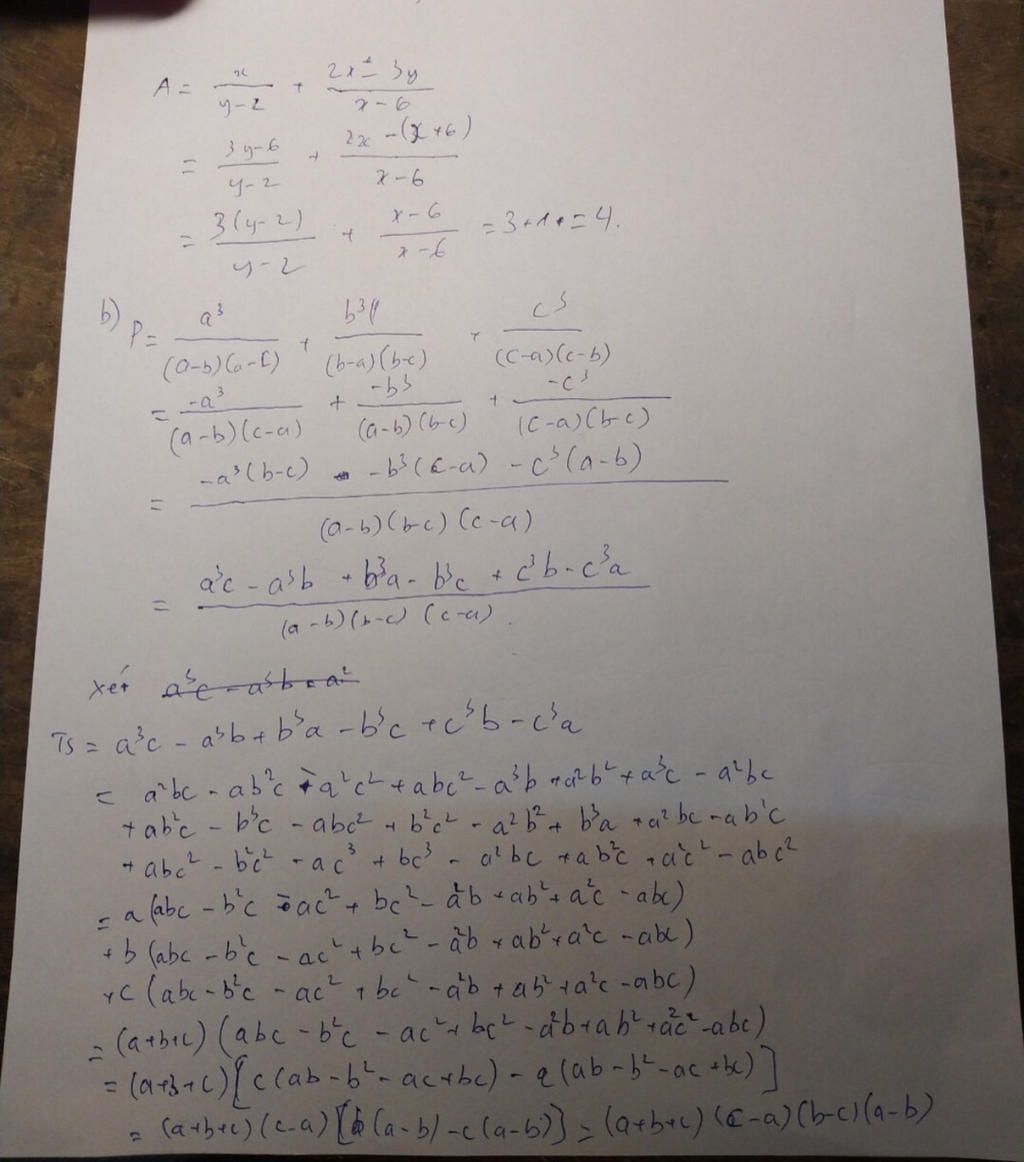 A = x/(y-2) + (2x - 3y)/(x-6)
= (3y-6)/(y-2) + (2x - (x+6))/(x-6)
= 3(y-2)/(y-2) + (x-6)/(x-6) = 3+1 = 4.
b) P = a³/((a-b)(a-c)) + b³/((b-a)(b-c)) + c³/((c-a)(c-b))
= -a³/((a-b)(c-a)) + -b³/((a-b)(b-c)) + -c³/((c-a)(b-c))
= (-a³(b-c) - b³(c-a) - c³(a-b))/((a-b)(b-c)(c-a))
= (a³c - a³b + b³a - b³c + c³b - c³a)/((a-b)(b-c)(c-a)).
xét a³c - a³b = a²
Ts = a³c - a³b + b³a - b³c + c³b - c³a
= a²bc - ab²c - a²c² + abc² - a³b + a²b² + a³c - a²bc
+ ab²c - b³c - abc² + b²c² - a²b² + b³a + a²bc - ab²c
+ abc² - b²c² - ac³ + bc³ - a²bc + ab²c + a²c² - abc²
= a(abc - b²c - ac² + bc² - a²b + ab² + a²c - abc)
+ b(abc - b²c - ac² + bc² - a²b + ab² + a²c - abc)
+ c(abc - b²c - ac² + bc² - a²b + ab² + a²c - abc)
= (a+b+c)(abc - b²c - ac² + bc² - a²b + ab² + a²c - abc)
= (a+b+c)[c(ab - b² - ac + bc) - a(ab - b² - ac + bc)]
= (a+b+c)(c-a)[b(a-b) - c(a-b)] = (a+b+c)(c-a)(b-c)(a-b)